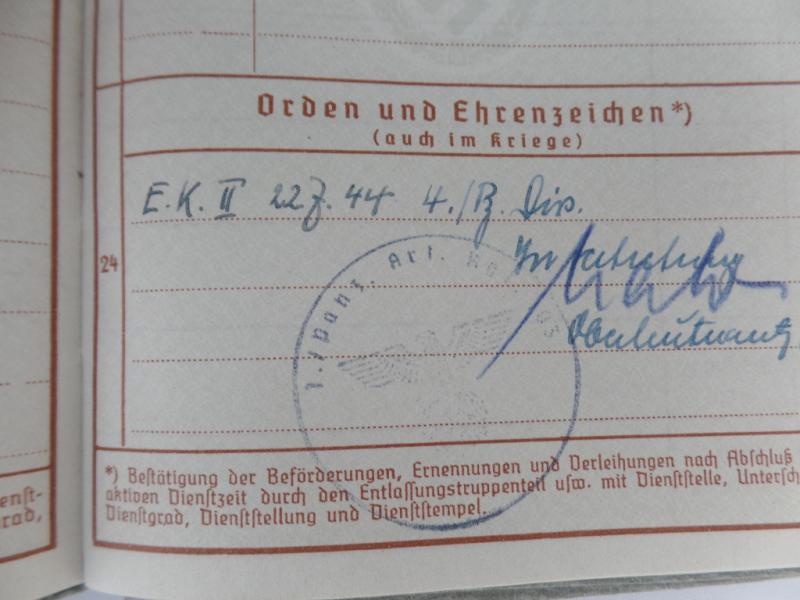 Orden und Ehrenzeichen*)
(auch im Kriege)
E.K. II 22.7.44 4./Pz. Div.
24
In Vertretung
Oberleutnant
I./Panz. Art. Reg.
*) Bestätigung der Beförderungen, Ernennungen und Verleihungen nach Abschluß
aktiven Dienstzeit durch den Entlassungstruppenteil usw. mit Dienststelle, Untersch
Dienstgrad, Dienststellung und Dienststempel.
enst-
grad,